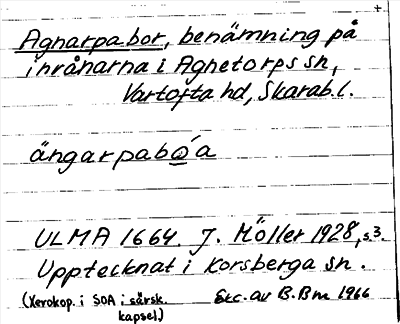 Agnarpabor, benämning på
inrånarna i Agnetorps sn,
Vartofta hd, Skarab. l.
ängarpabo̲´a
ULMA 1664. J. Möller 1928, s. 3.
Upptecknat i Korsberga sn.
(Xerokop. i SOA i särsk. kapsel.)
Exc. av B.Bm 1966